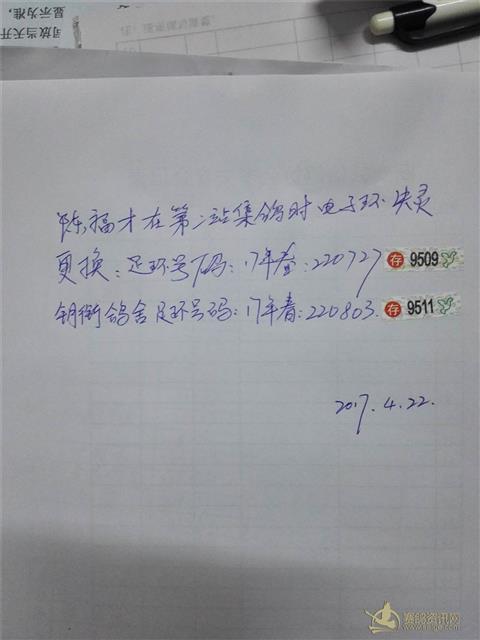 司放当天开
显示为准，
陈福才在第二站集鸽时电子环失灵
更换：足环号码：17年春：220727 存 9509
钥衔鸽舍足环号码：17年春：220803. 存 9511
2017.4.22.
赛鸽资讯网